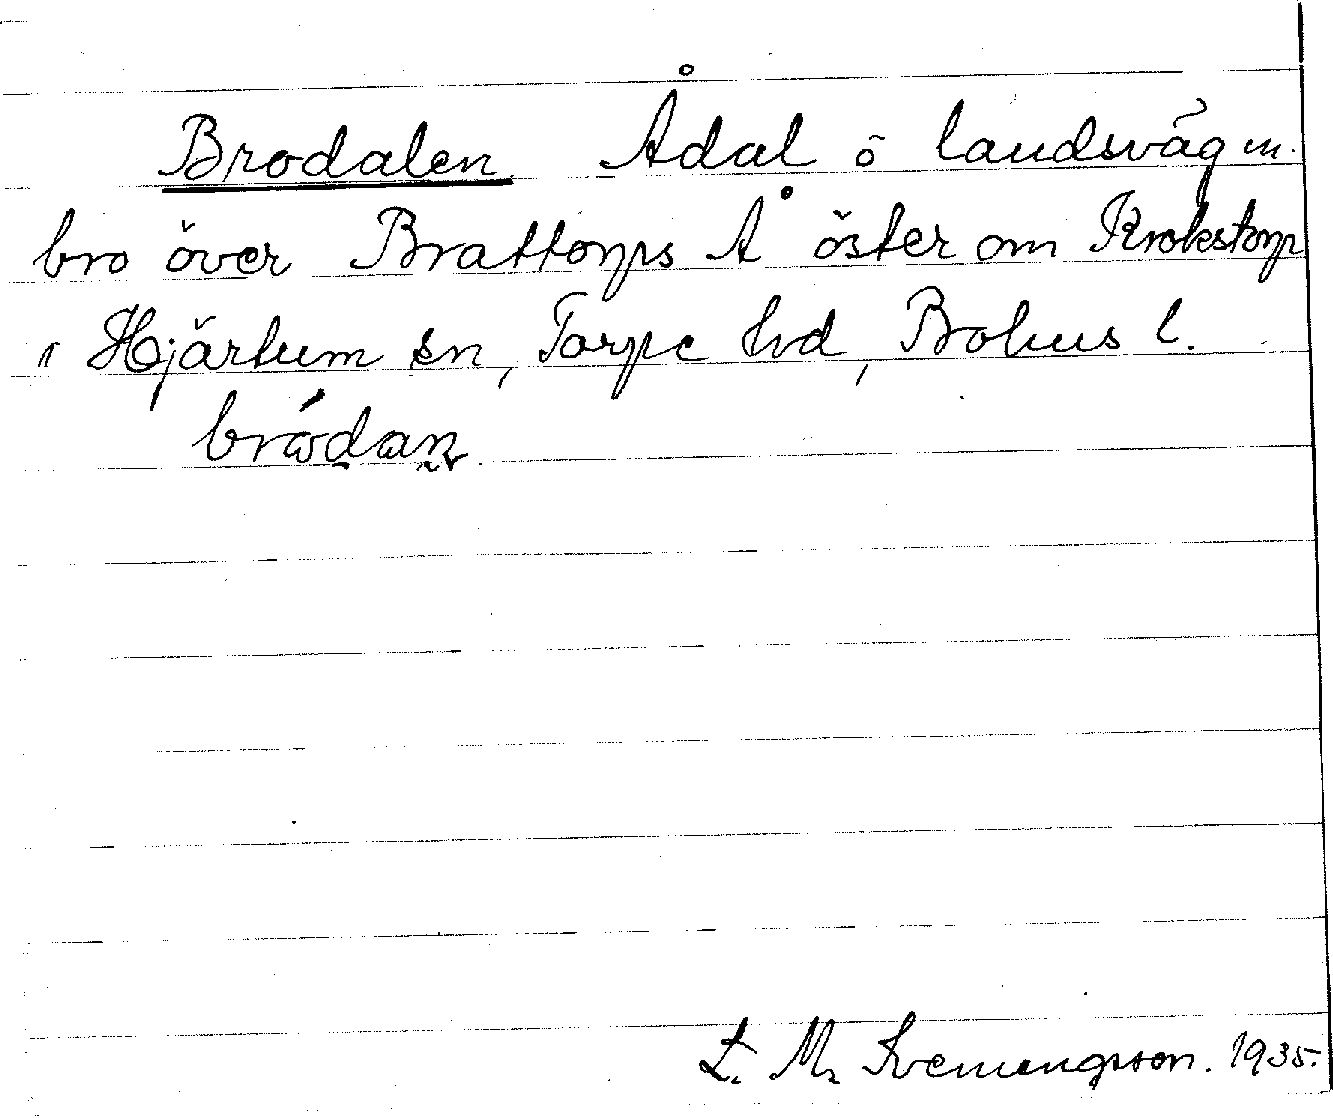 Brodalen Ådal o landsväg m.
bro över Brattorps Å öster om Krokstorp
i Hjärtum sn, Torpe hd, Bohus l.
brödan
L. M. Svenungsson. 1935.